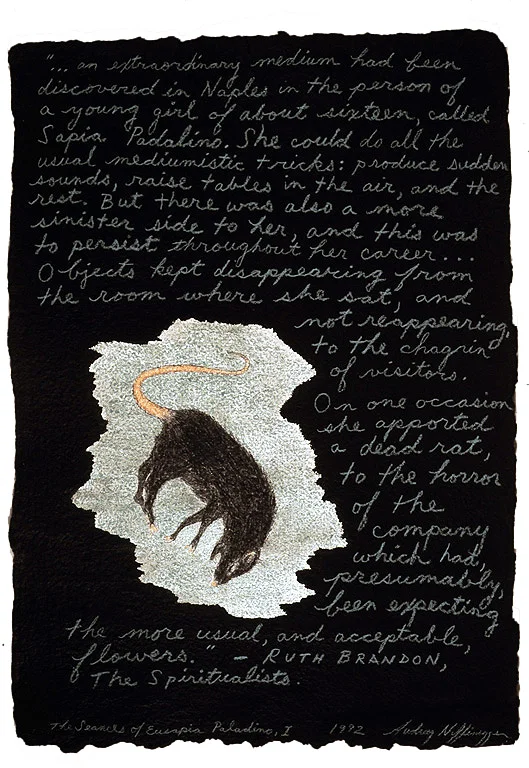 "... an extraordinary medium had been
discovered in Naples in the person of
a young girl of about sixteen, called
Sapia Padalino. She could do all the
usual mediumistic tricks: produce sudden
sounds, raise tables in the air, and the
rest. But there was also a more
sinister side to her, and this was
to persist throughout her career...
Objects kept disappearing from
the room where she sat, and
not reappearing,
to the chagrin
of visitors.
On one occasion
she apported
a dead rat,
to the horror
of the
company
which had,
presumably,
been expecting
the more usual, and acceptable,
flowers." - RUTH BRANDON,
The Spiritualists.
The Seances of Eusapia Paladino, I 1992 Audrey Niffenegger